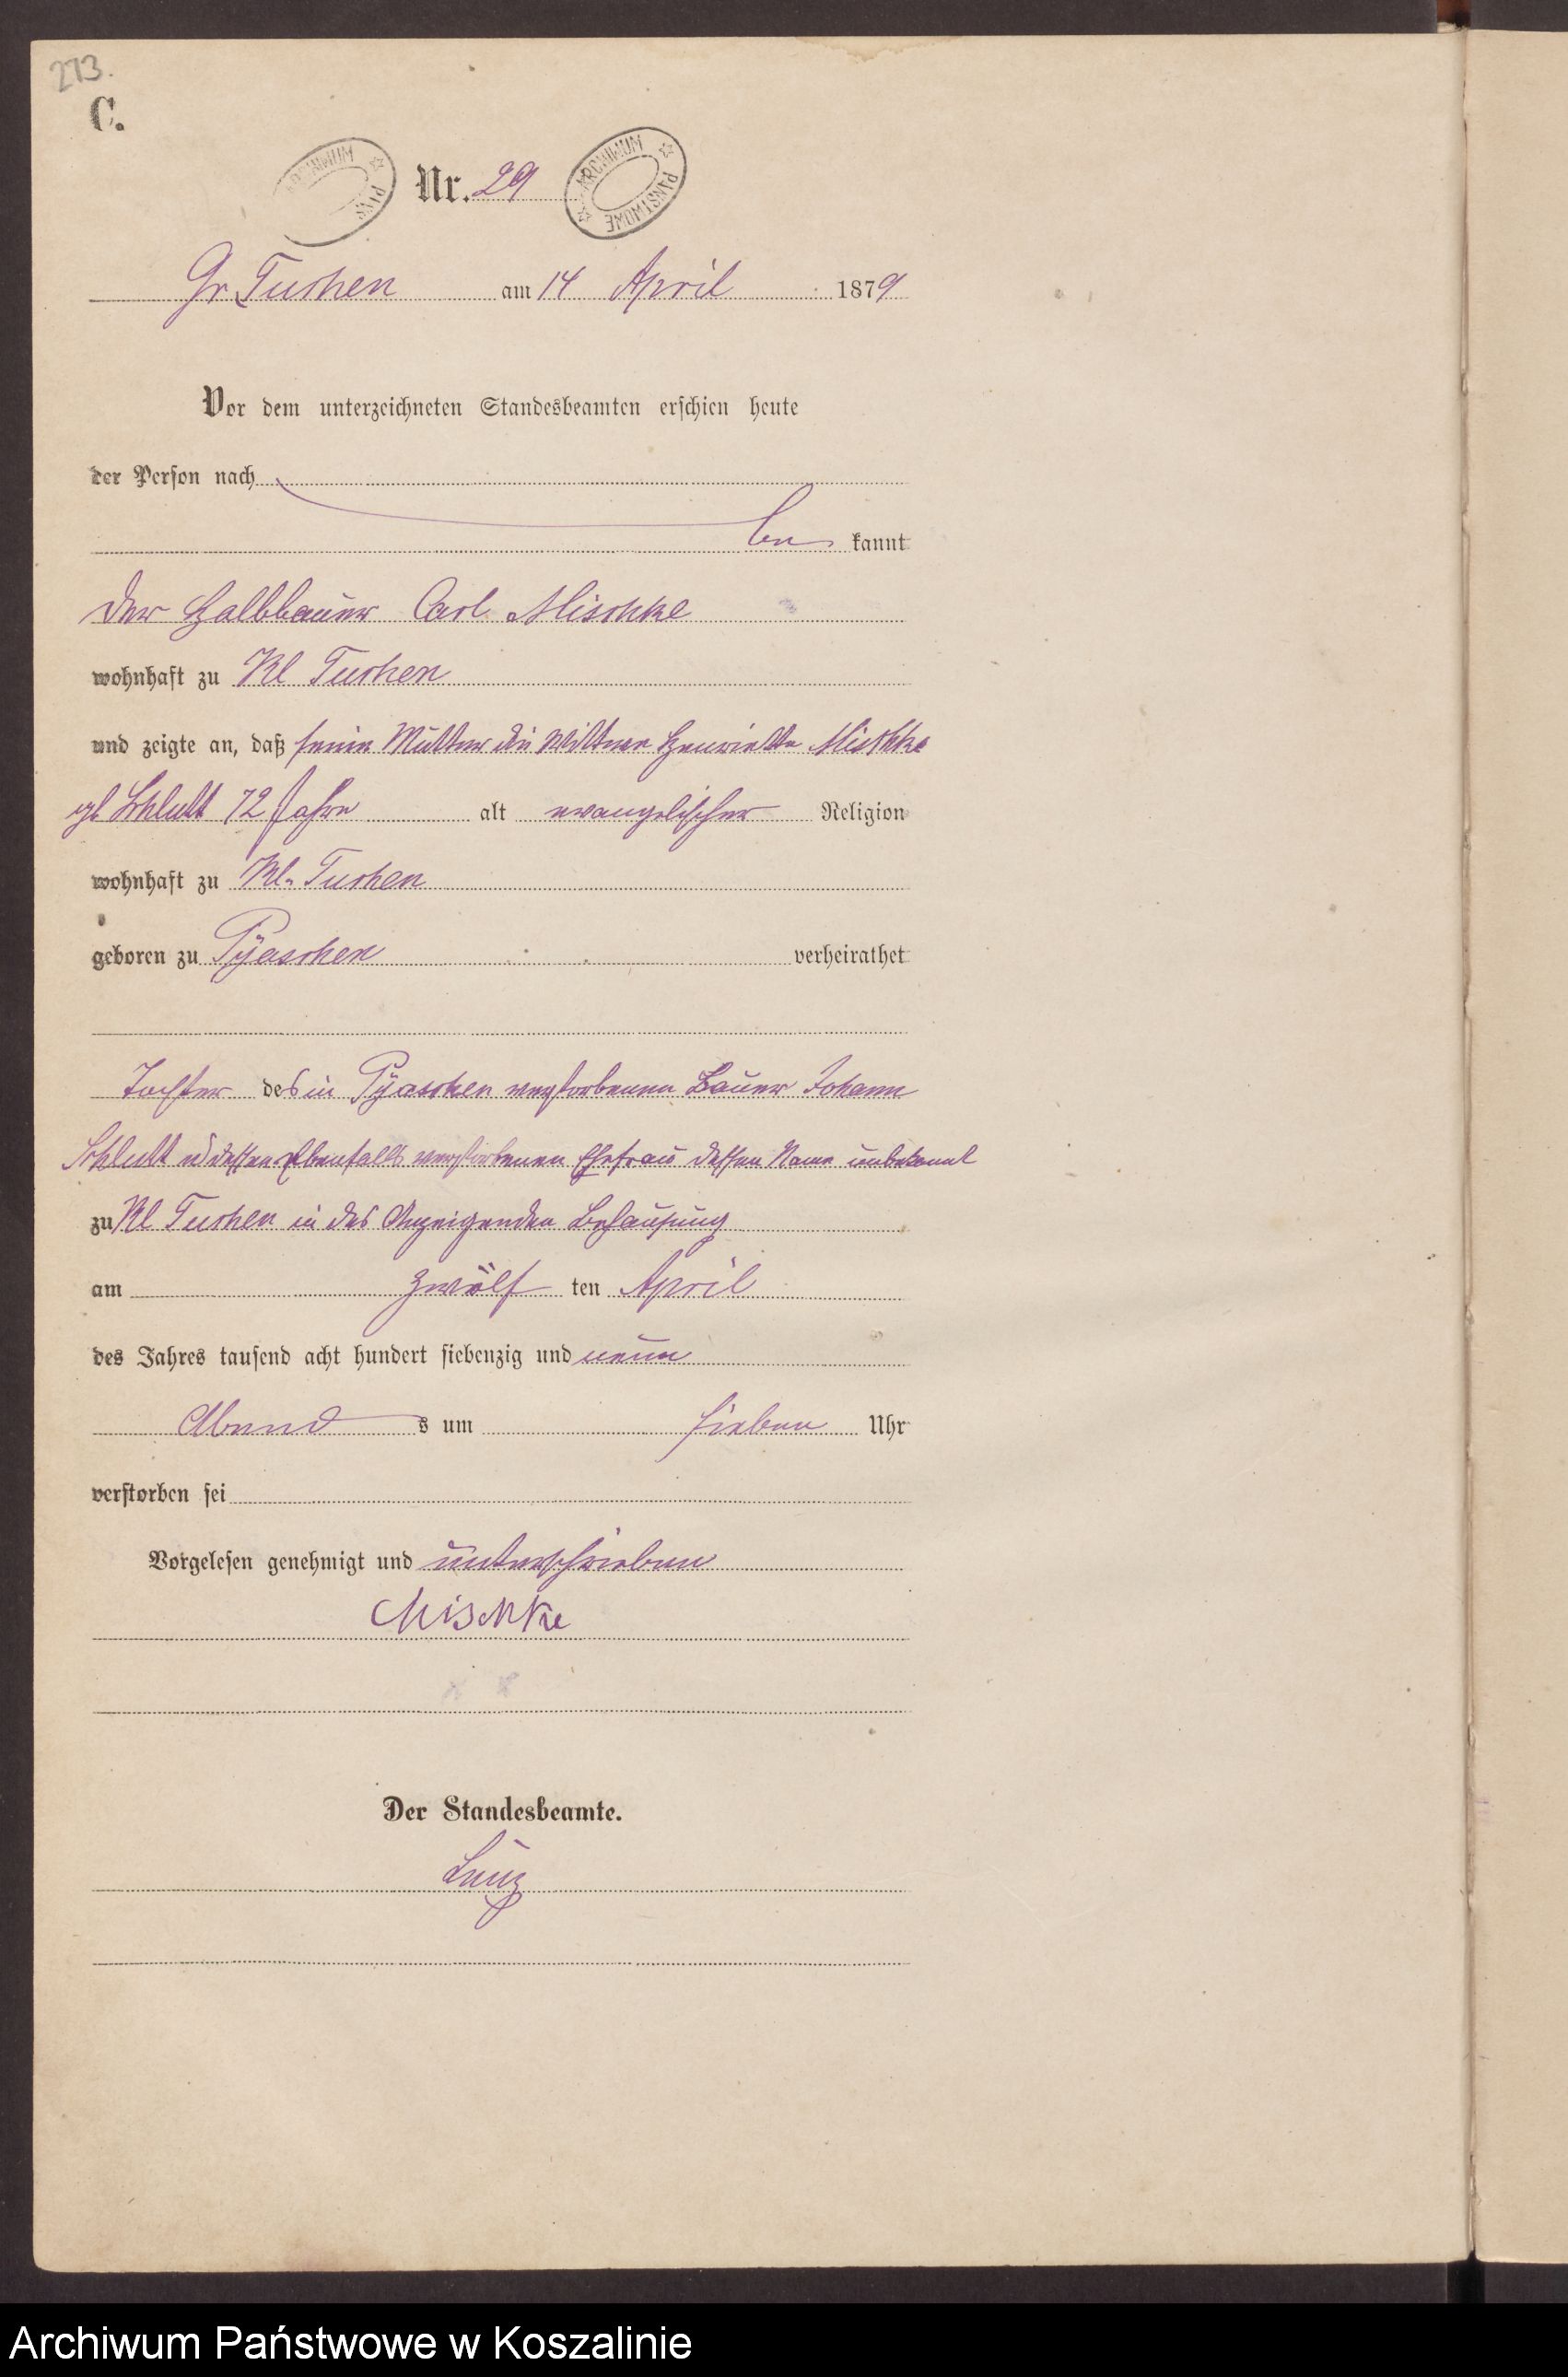 273.
C.
ARCHIWUM PAŃS
Nr. 29
ARCHIWUM PAŃSTWOWE
Gr Tuchen am 14 April 1879
Vor dem unterzeichneten Standesbeamten erschien heute
der Person nach
be kannt
der Halbbauer Carl Mischke
wohnhaft zu Kl Tuchen
und zeigte an, daß seine Mutter die Wittwe Henriette Mischke
gb Schlutt 72 Jahre alt evangelischer Religion
wohnhaft zu Kl. Tuchen
geboren zu Pyaschen verheirathet
Tochter des in Pyaschen verstorbenen Bauer Johann
Schlutt u dessen ebenfalls verstorbenen Ehefrau dessen Name unbekannt
zu Kl Tuchen in des Anzeigenden Behausung
am zwölf ten April
des Jahres tausend acht hundert siebenzig und neun
Abend s um sieben Uhr
verstorben sei
Vorgelesen genehmigt und unterschrieben
Mischke
Der Standesbeamte.
Archiwum Państwowe w Koszalinie